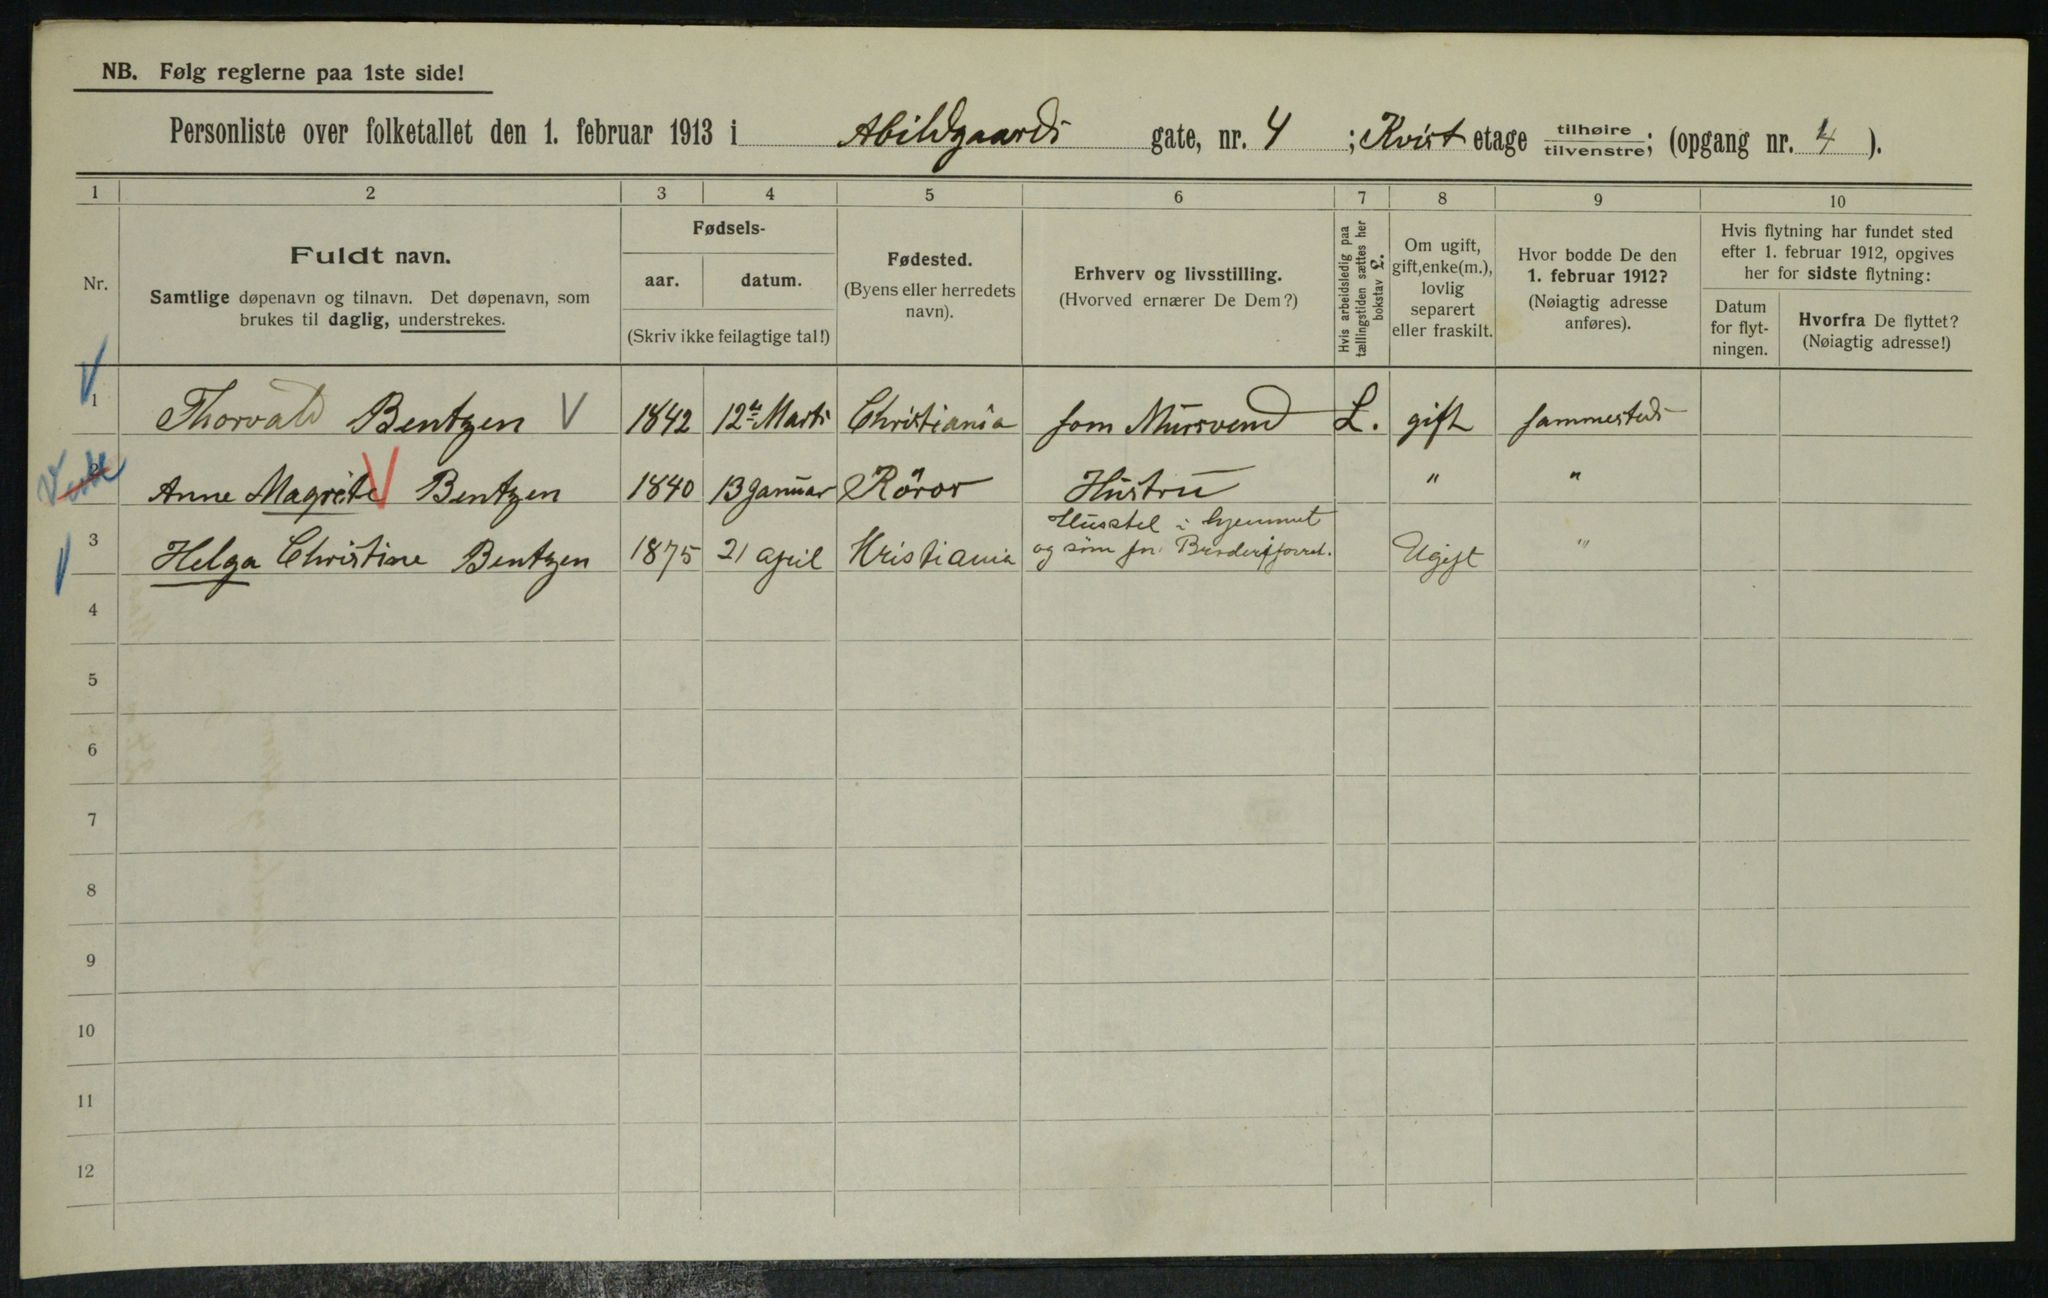 NB. Følg reglerne paa 1ste side!
Personliste over folketallet den 1. februar 1913 i Abildgaards gate, nr. 4 ; Kvist etage tilhøire / tilvenstre; (opgang nr. 4 ).
1 2 3 4 5 6 7 8 9 10
Nr.
Fuldt navn.
Samtlige døpenavn og tilnavn. Det døpenavn, som
brukes til daglig, understrekes.
Fødsels-
aar. datum.
(Skriv ikke feilagtige tal!)
Fødested.
(Byens eller herredets
navn).
Erhverv og livsstilling.
(Hvorved ernærer De Dem?)
Hvis arbeidsledig paa
tællingstiden sættes her
bokstav L.
Om ugift,
gift, enke(m.),
lovlig
separert
eller fraskilt.
Hvor bodde De den
1. februar 1912?
(Nøiagtig adresse
anføres).
Hvis flytning har fundet sted
efter 1. februar 1912, opgives
her for sidste flytning:
Datum
for flyt-
ningen.
Hvorfra De flyttet?
(Nøiagtig adresse!)
1 Thorvald Bentzen V 1842 12te Marts Christiania som Mursvend L. gift sammesteds
2 Anne Magrete V Bentzen 1840 13 Januar Röros Hustru " "
3 Helga Christine Bentzen 1875 21 april Kristiania Husstel i hjemmet
og søm for Ugift "
4
5
6
7
8
9
10
11
12